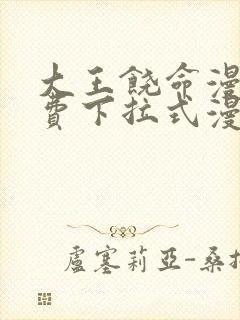 大王饶命漫
费下拉式漫
盧塞莉亞-桑